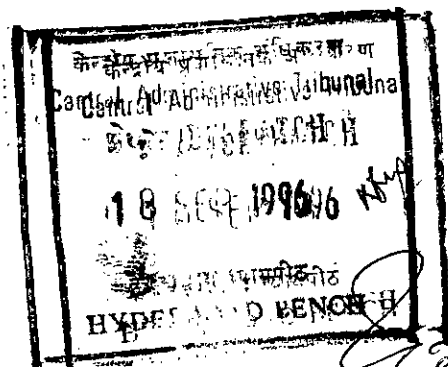 केन्द्रीय प्रशासनिक अधिकरण
Central Administrative Tribunal
DESPATCH
18 1996
न्यायपीठ
HYDERABAD BENCH